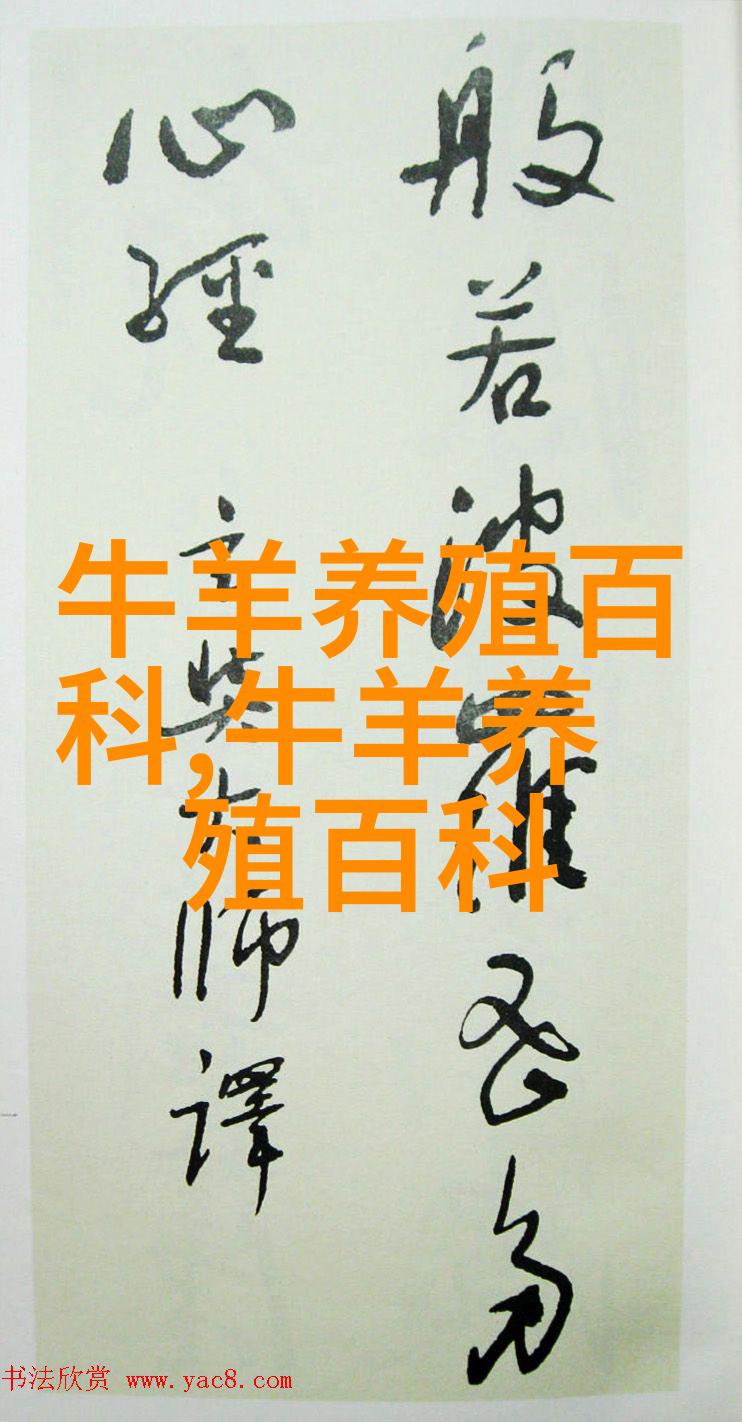 般若波羅密多
心經 玄奘大師譯
牛羊养殖百
科,牛羊养
殖百科
书法欣赏 www.yac8.com